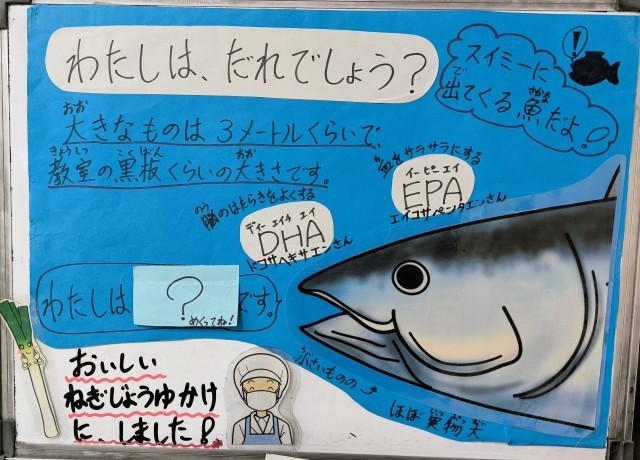 わたしは、だれでしょう？
スイミーに
で さかな
出てくる魚だよ！
！
おお
大きなものは３メートルくらいで、
きょうしつ こくばん おお
教室の黒板くらいの大きさです。
血をサラサラにする
イーピーエイ
EPA
エイコサペンタエンさん
のう
脳のはたらきをよくする
ディーエイチエイ
DHA
ドコサヘキサエンさん
わたしは ？ です。
めくってね！
小さいものの
ほぼ実物大
おいしい
ねぎしょうゆかけ
に、しました！